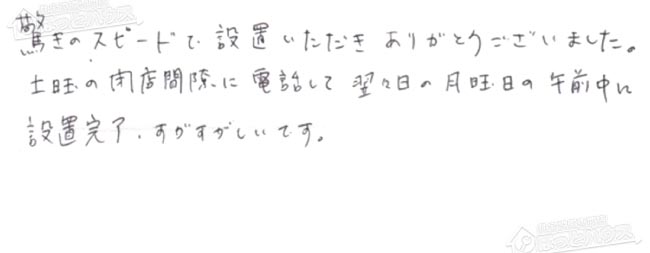 驚きのスピードで設置いただきありがとうございました。
土旺の閉店間際に電話して翌々日の月旺日の午前中に
設置完了、すがすがしいです。